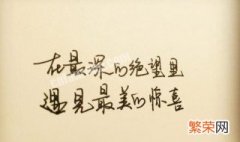 在最深的绝望里
遇见最美的惊喜
繁荣网